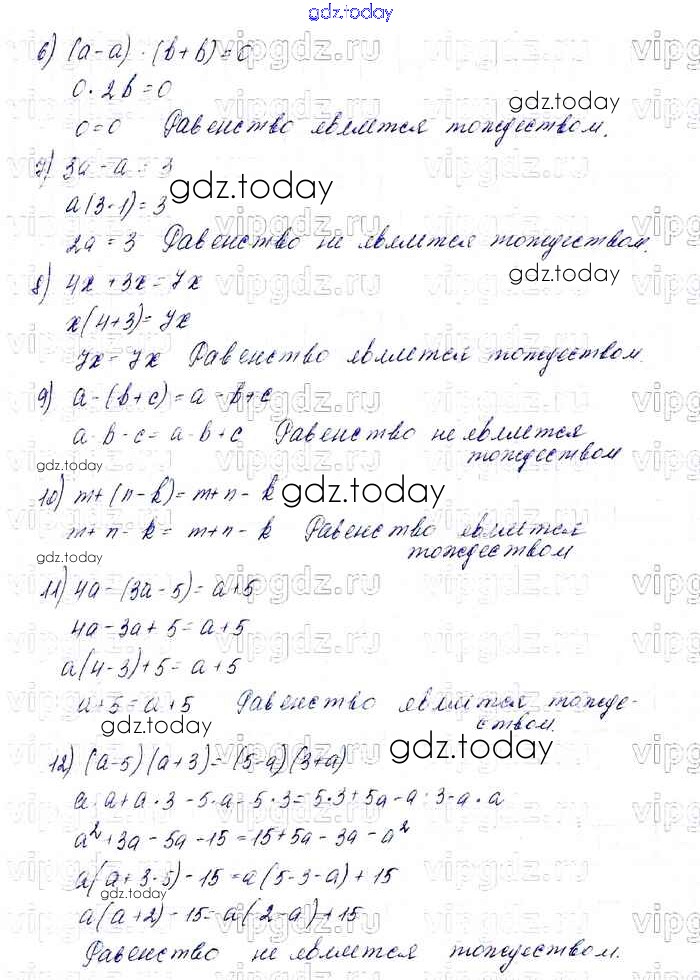 gdz.today
6) (a-a)·(b+b)=0
0·2b=0
0=0 Равенство является тождеством.
7) 3a-a=3
a(3-1)=3
2a=3 Равенство не является тождеством.
8) 4x+3x=7x
x(4+3)=7x
7x=7x Равенство является тождеством.
9) a-(b+c)=a-b+c
a-b-c=a-b+c Равенство не является
тождеством
10) m+(n-k)=m+n-k
m+n-k=m+n-k Равенство является
тождеством
11) 4a-(3a-5)=a+5
4a-3a+5=a+5
a(4-3)+5=a+5
a+5=a+5 Равенство является тожде-
ством.
12) (a-5)(a+3)=(5-a)(3+a)
a·a+a·3-5·a-5·3=5·3+5a-a·3-a·a
a²+3a-5a-15=15+5a-3a-a²
a(a+3-5)-15=a(5-3-a)+15
a(a+2)-15=a(2-a)+15
Равенство не является тождеством.